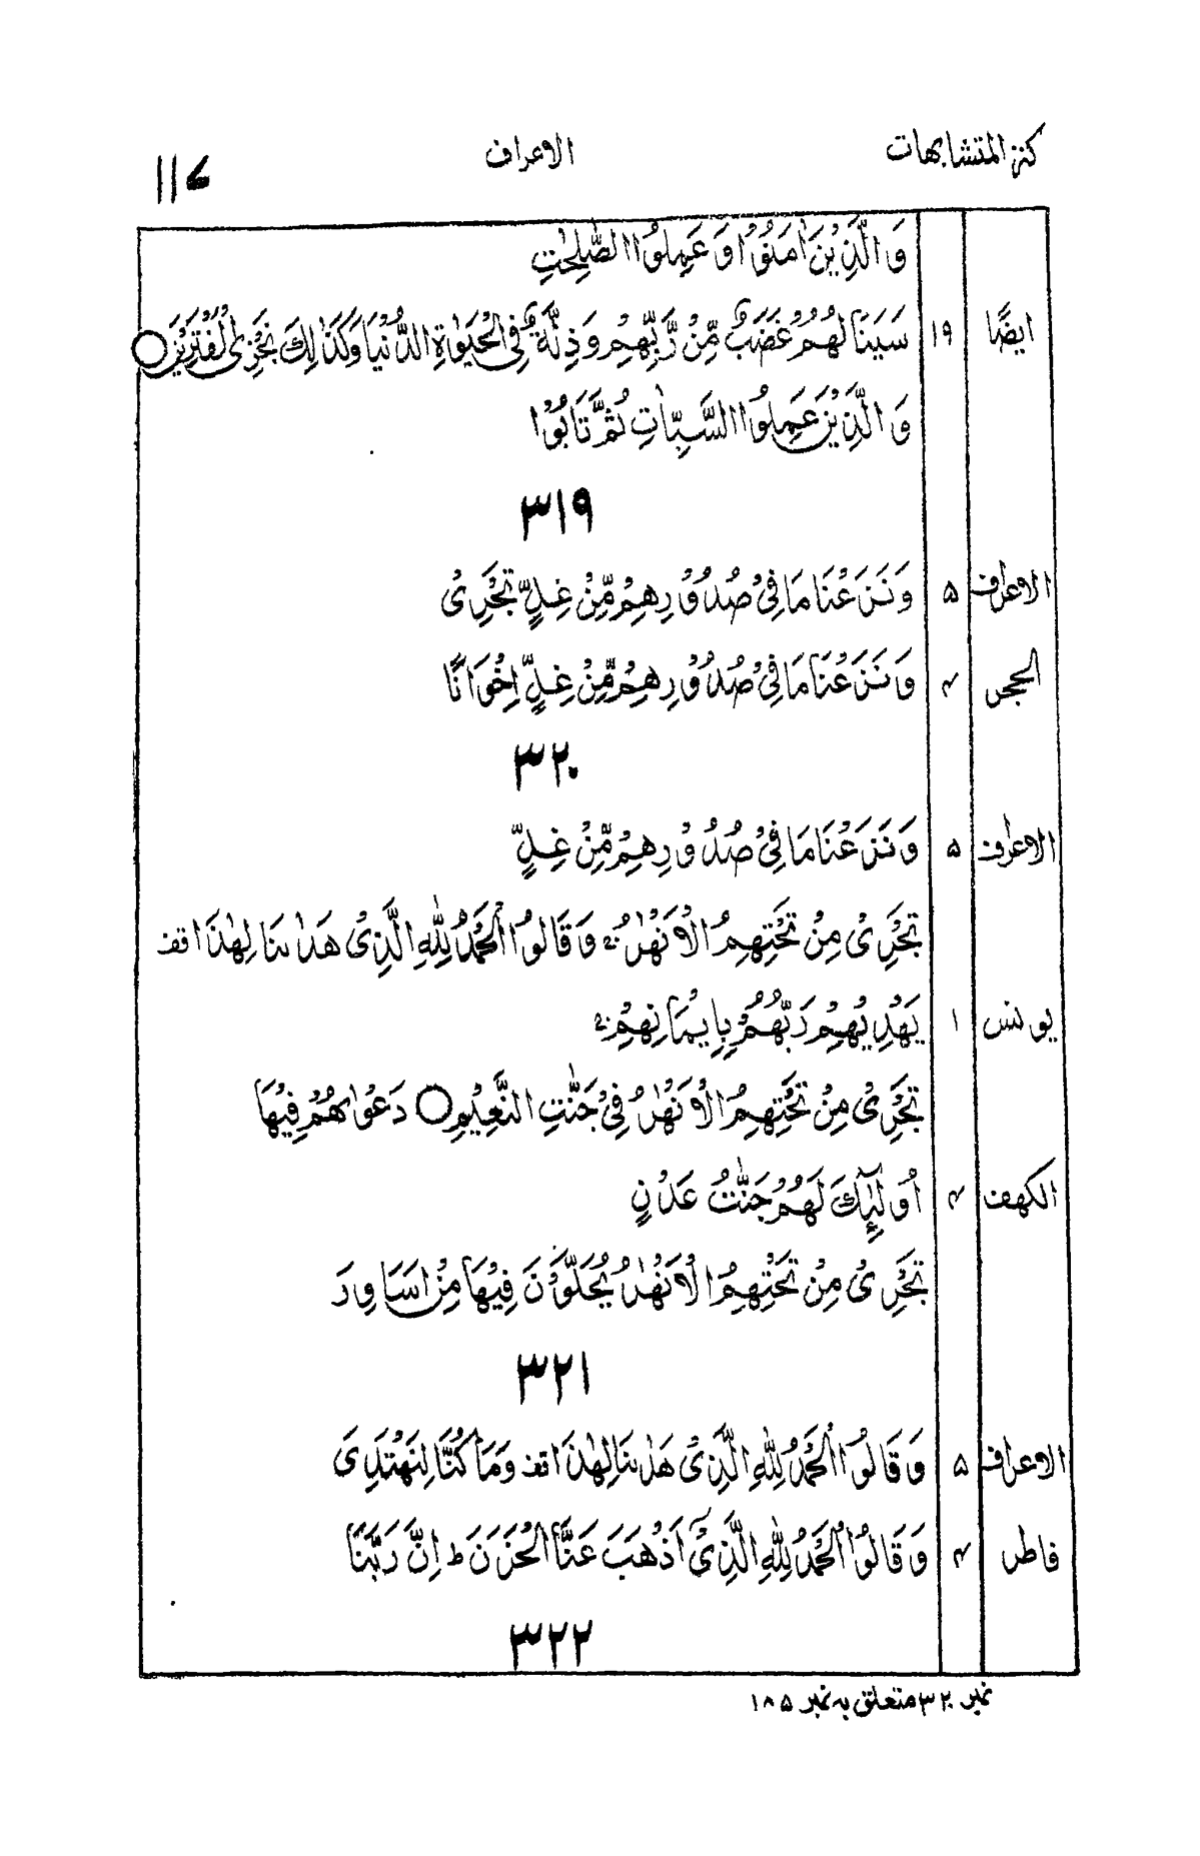 كنز المتشابهات الاعراف ۱۱۷
وَالَّذِيْنَ اٰمَنُوْا وَعَمِلُوا الصّٰلِحٰتِ
ايضًا ۱۹ سَيَنَالُهُمْ غَضَبٌ مِّنْ رَّبِّهِمْ وَذِلَّةٌ فِى الْحَيٰوةِ الدُّنْيَا وَكَذٰلِكَ نَجْزِى الْمُفْتَرِيْنَ ○
وَالَّذِيْنَ عَمِلُوا السَّيِّاٰتِ ثُمَّ تَابُوْا
۳۱۹
الاعراف ۵ وَنَزَعْنَا مَا فِىْ صُدُوْرِهِمْ مِّنْ غِلٍّ تَجْرِىْ
الحجر ۴ وَنَزَعْنَا مَا فِىْ صُدُوْرِهِمْ مِّنْ غِلٍّ اِخْوَانًا
۳۲۰
الاعراف ۵ وَنَزَعْنَا مَا فِىْ صُدُوْرِهِمْ مِّنْ غِلٍّ
تَجْرِىْ مِنْ تَحْتِهِمُ الْاَنْهٰرُ ۚ وَقَالُوا الْحَمْدُ لِلّٰهِ الَّذِىْ هَدٰىنَا لِهٰذَا قف
يونس ۱ يَهْدِيْهِمْ رَبُّهُمْ بِاِيْمَانِهِمْ ۚ
تَجْرِىْ مِنْ تَحْتِهِمُ الْاَنْهٰرُ فِىْ جَنّٰتِ النَّعِيْمِ ○ دَعْوٰىهُمْ فِيْهَا
الكهف ۴ اُولٰٓئِكَ لَهُمْ جَنّٰتُ عَدْنٍ
تَجْرِىْ مِنْ تَحْتِهِمُ الْاَنْهٰرُ يُحَلَّوْنَ فِيْهَا مِنْ اَسَاوِرَ
۳۲۱
الاعراف ۵ وَقَالُوا الْحَمْدُ لِلّٰهِ الَّذِىْ هَدٰىنَا لِهٰذَا قف وَمَا كُنَّا لِنَهْتَدِىَ
فاطر ۴ وَقَالُوا الْحَمْدُ لِلّٰهِ الَّذِىْٓ اَذْهَبَ عَنَّا الْحَزَنَ ط اِنَّ رَبَّنَا
۳۲۲
نمبر ۳۲۰ متعلق به نمبر ۱۸۵